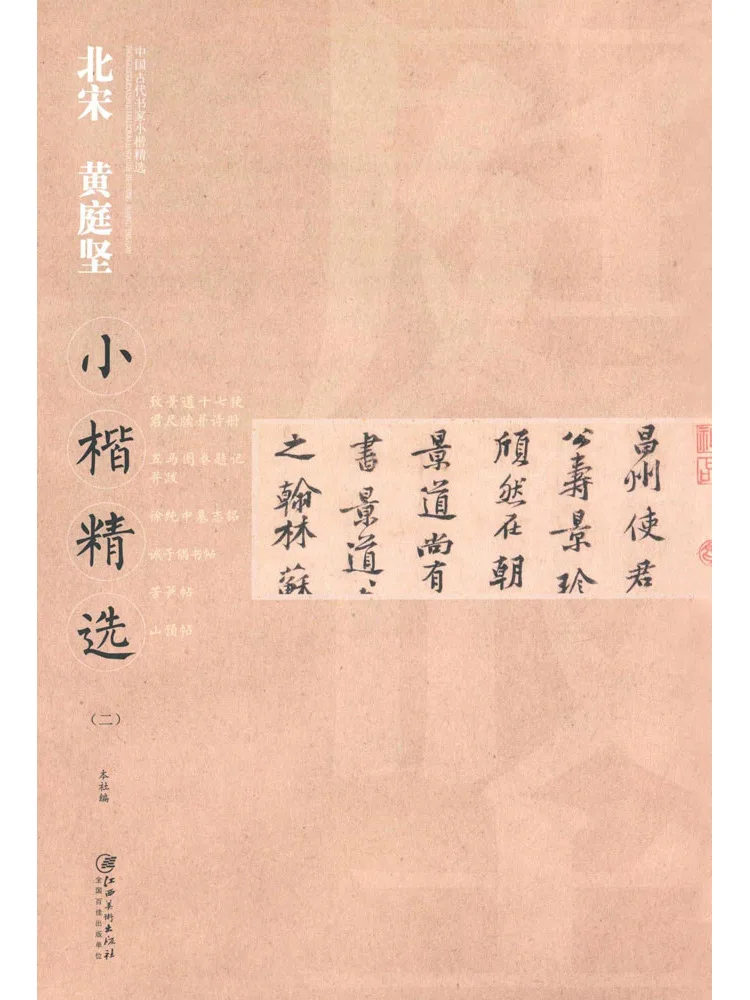 中国古代书家小楷精选
北宋 黄庭坚
小楷精选
(二)
本社编
江西美术出版社
全国百佳出版单位
致景道十七使
君尺牍并诗册
五马图卷题记
并跋
徐纯中墓志铭
诫子偶书帖
苦笋帖
山预帖
昌州使君
公寿景珍
颀然在朝
景道尚有
書景道
之翰林蘇